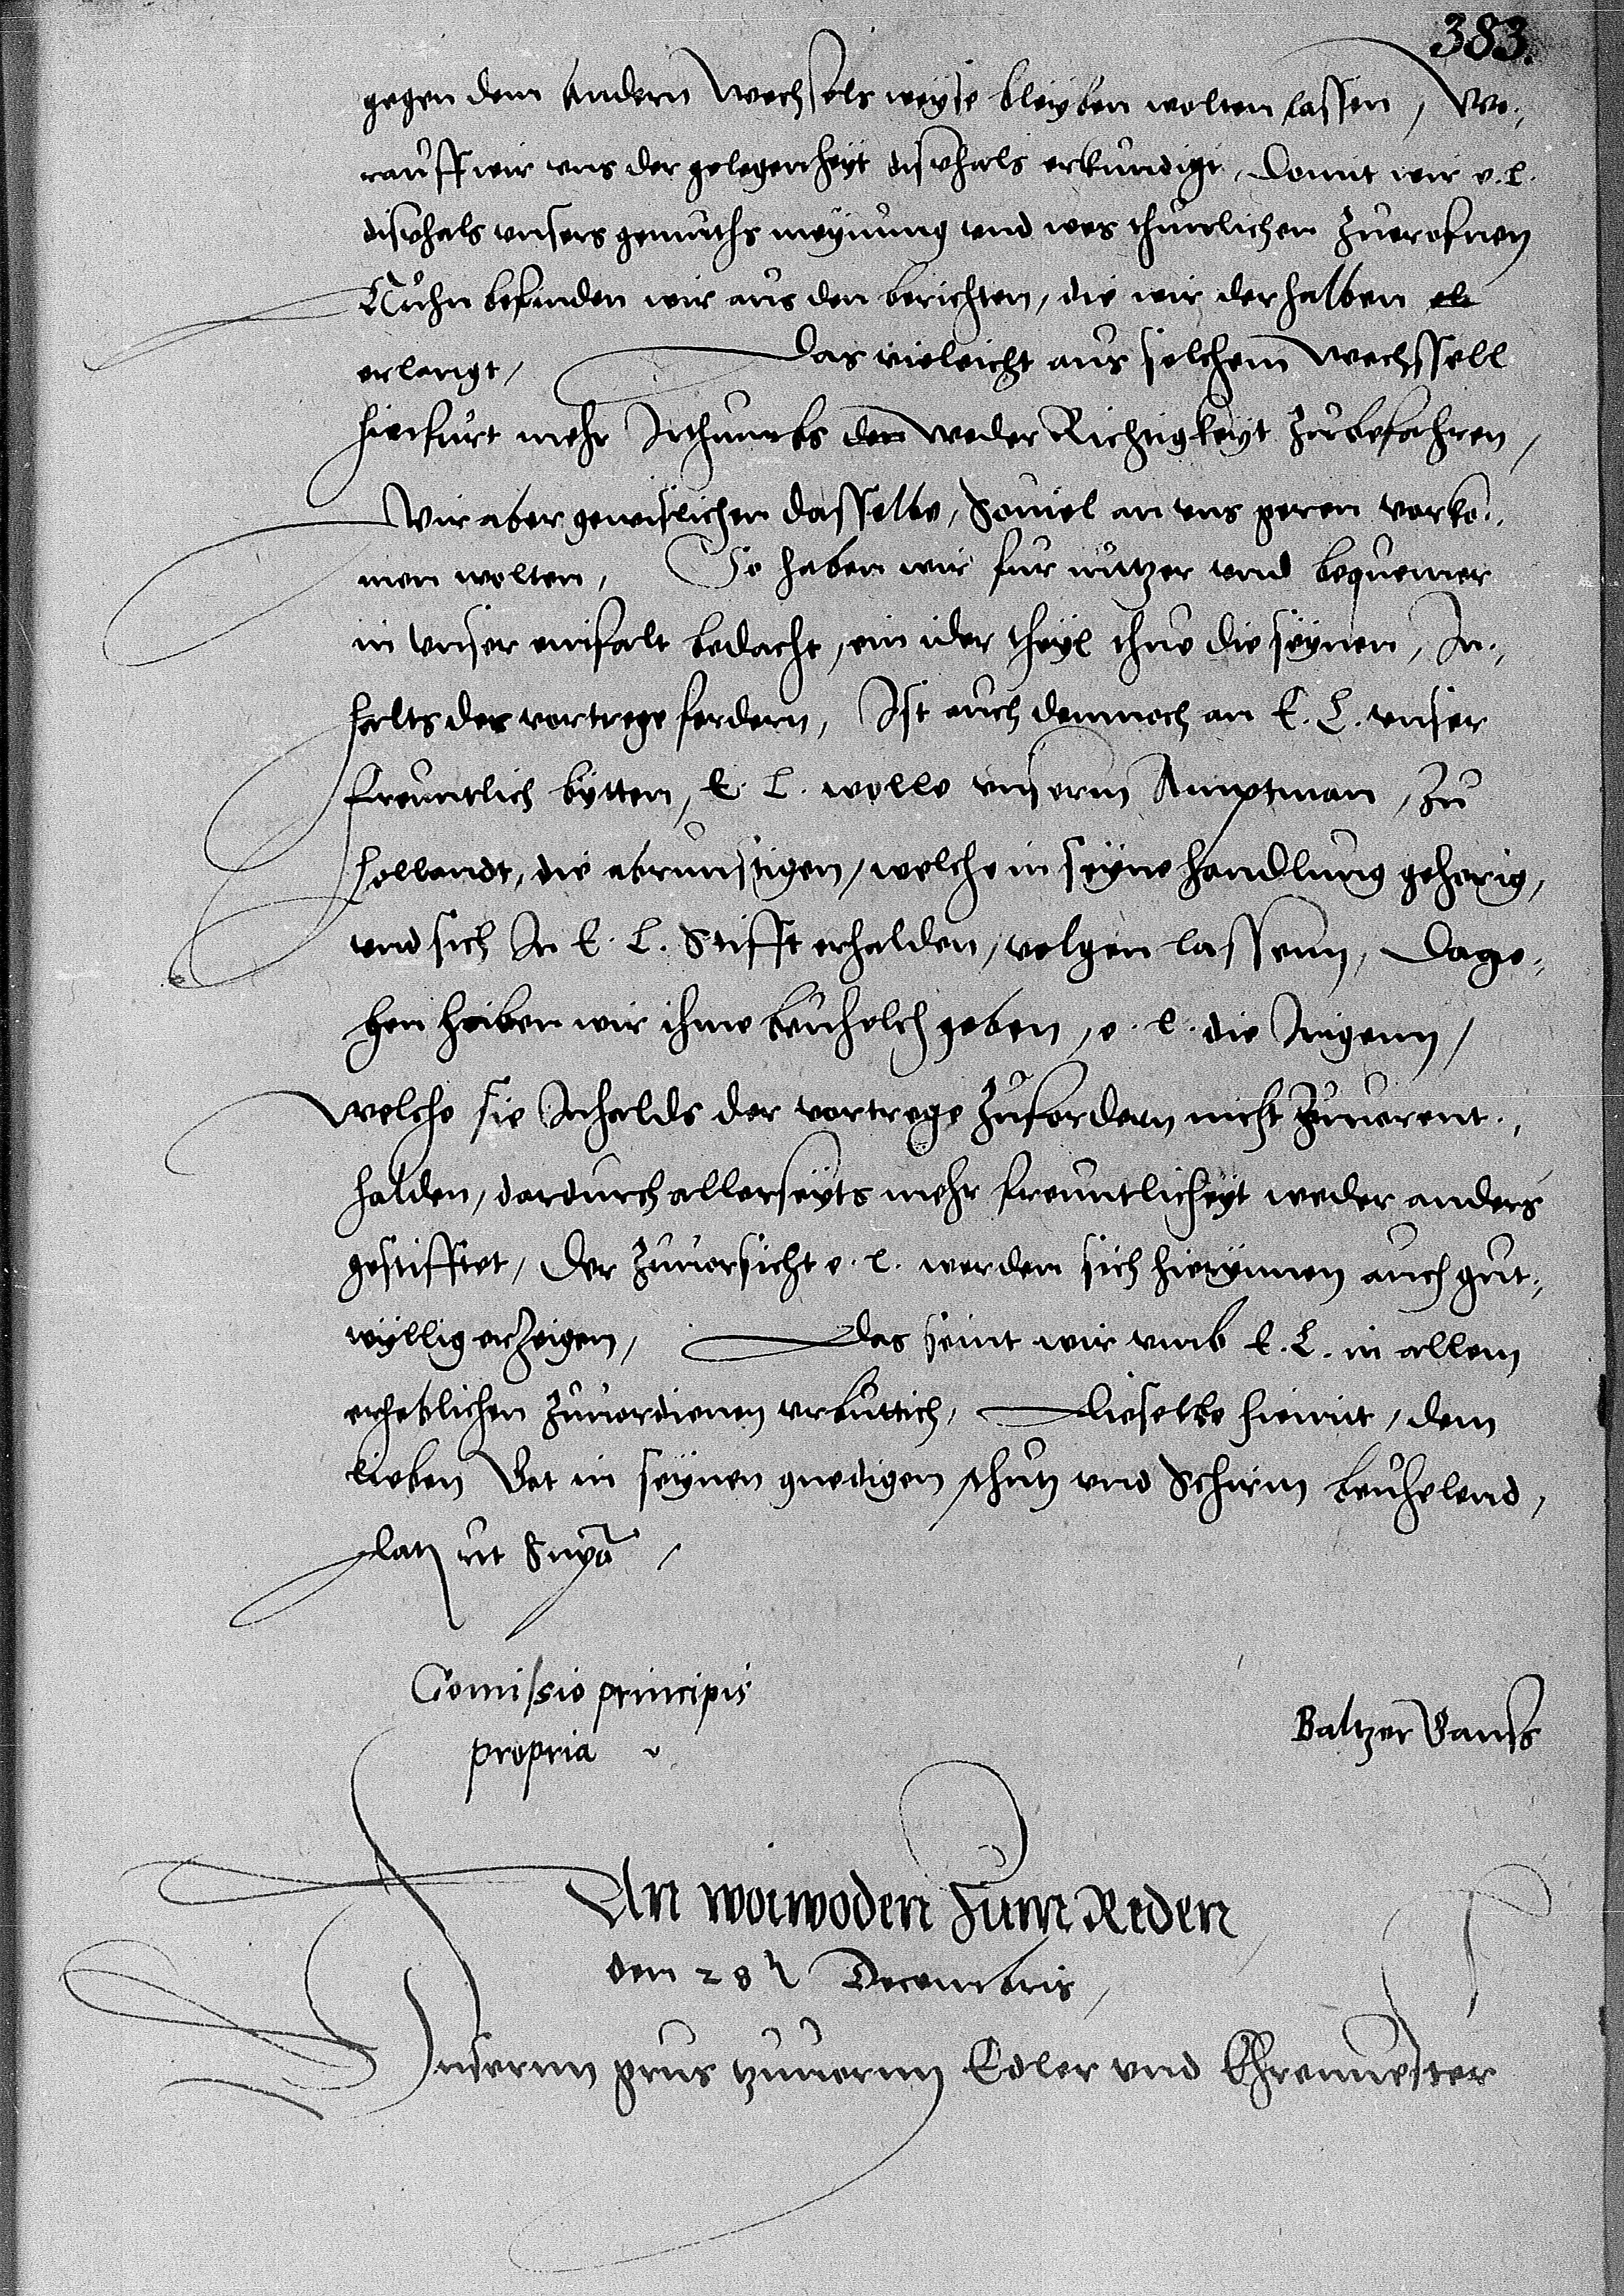 383.
gegen dem andern wechsels weyse bleyben wolten lassen, Wo„
rauff wir uns der gelegenheyt disfhals erkundigt, Domit wir e. l.
disfhals unsers gemuths meynung und wes thunlichen zuerofnen
Nuhn befinden wir aus den berichten, die wir derhalben
erlangt, Das vieleicht aus solchem wechssell
hinfurt mehr Irthumbs den weder Richtigkeyt zubefahren,
Wir aber gewislichen dasselbe, Souiel an uns geren vorko„
men wolten, So haben wir fur nutzer und bequemer
in unser einfalt bedacht, ein ider theyl thue die seynen, In„
halts der vortrege fordern, Ist auch demnach an E. L. unser
freuntlich bytten, E. L. wolle unserm Amptman, zu
Hollandt, die abrunstigen, welche in seyne handlung gehorig,
und sich In E. L. Stifft erhalden, volgen lassenn, Dage„
gen haben wir ihme beuhelch geben, e. l. die Irigenn,
welche sie Inhalds der vortrege zufordern nicht zuuorent„
halden, dardurch allerseyts mehr freuntlicheyt weder anders
gestifftet, Der zuuorsicht e. l. werden sich hierynnen auch gut„
wyllig erzeigen, Das seint wir umb E. L. in allem
erheblichen zuuordienen urbuttich, Dieselbe hiemit, dem
lieben Got in seynen gnedigen schutz und Schirm beuhelend,
Datum ut Supra,
Comissio principis
propria
Baltzer Gans
An woiwoden zum Reden
den 28 Decembris,
Unsernn grus zuuornn Edler und Ehrnuester